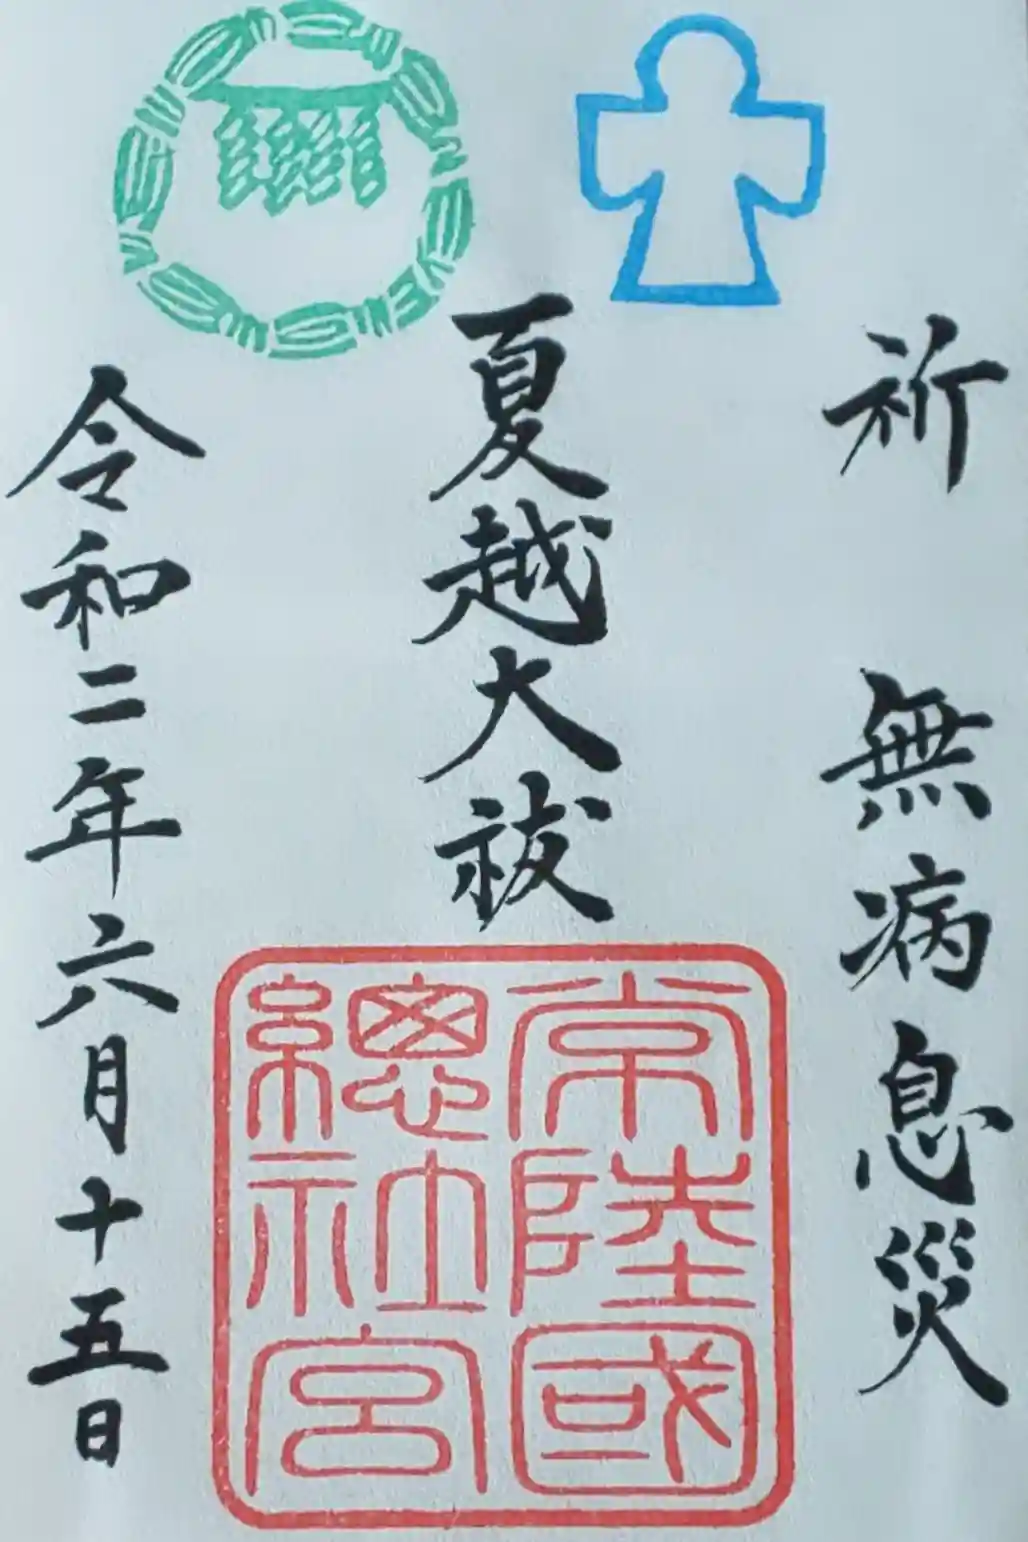 祈 無病息災
夏越大祓
常陸國
總社宮
令和二年六月十五日